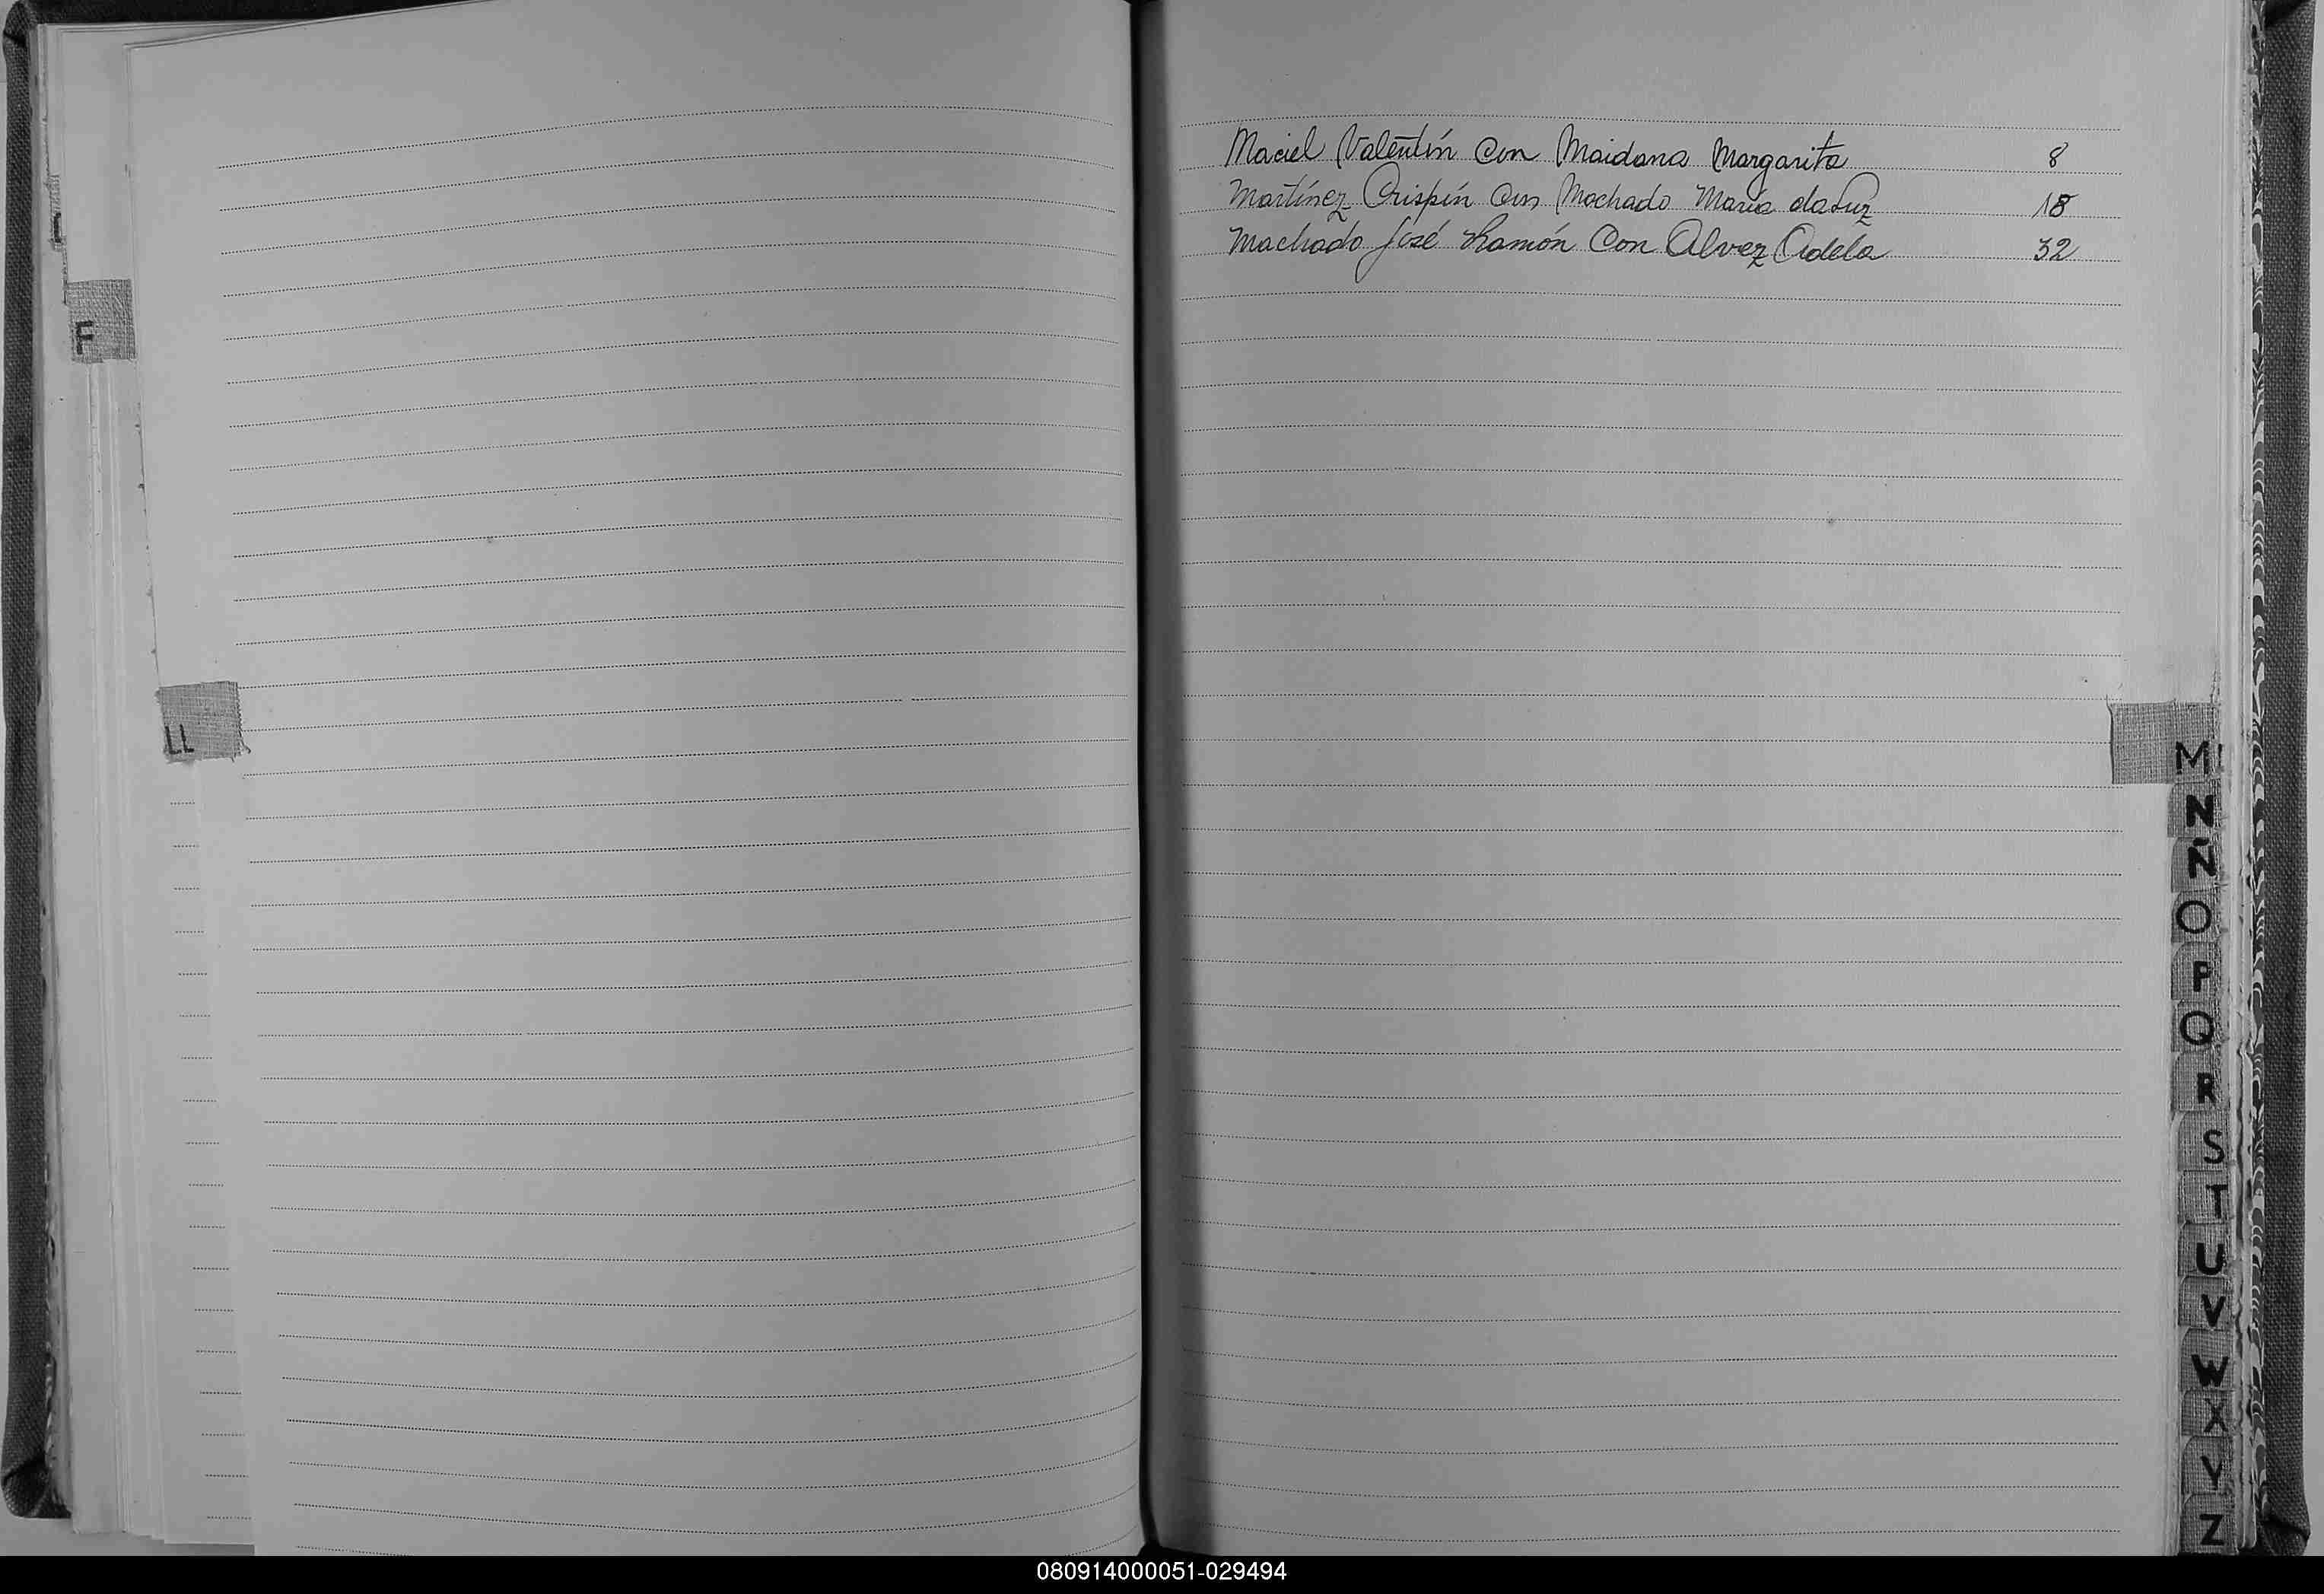 Maciel Valentín Con Maidana Margarita 8
Martínez Crispín Con Machado María da Luz 18
Machado José Ramón Con Alvez Adela 32
F
LL
M
N
Ñ
O
P
Q
R
S
T
U
V
W
X
Y
Z
080914000051-029494